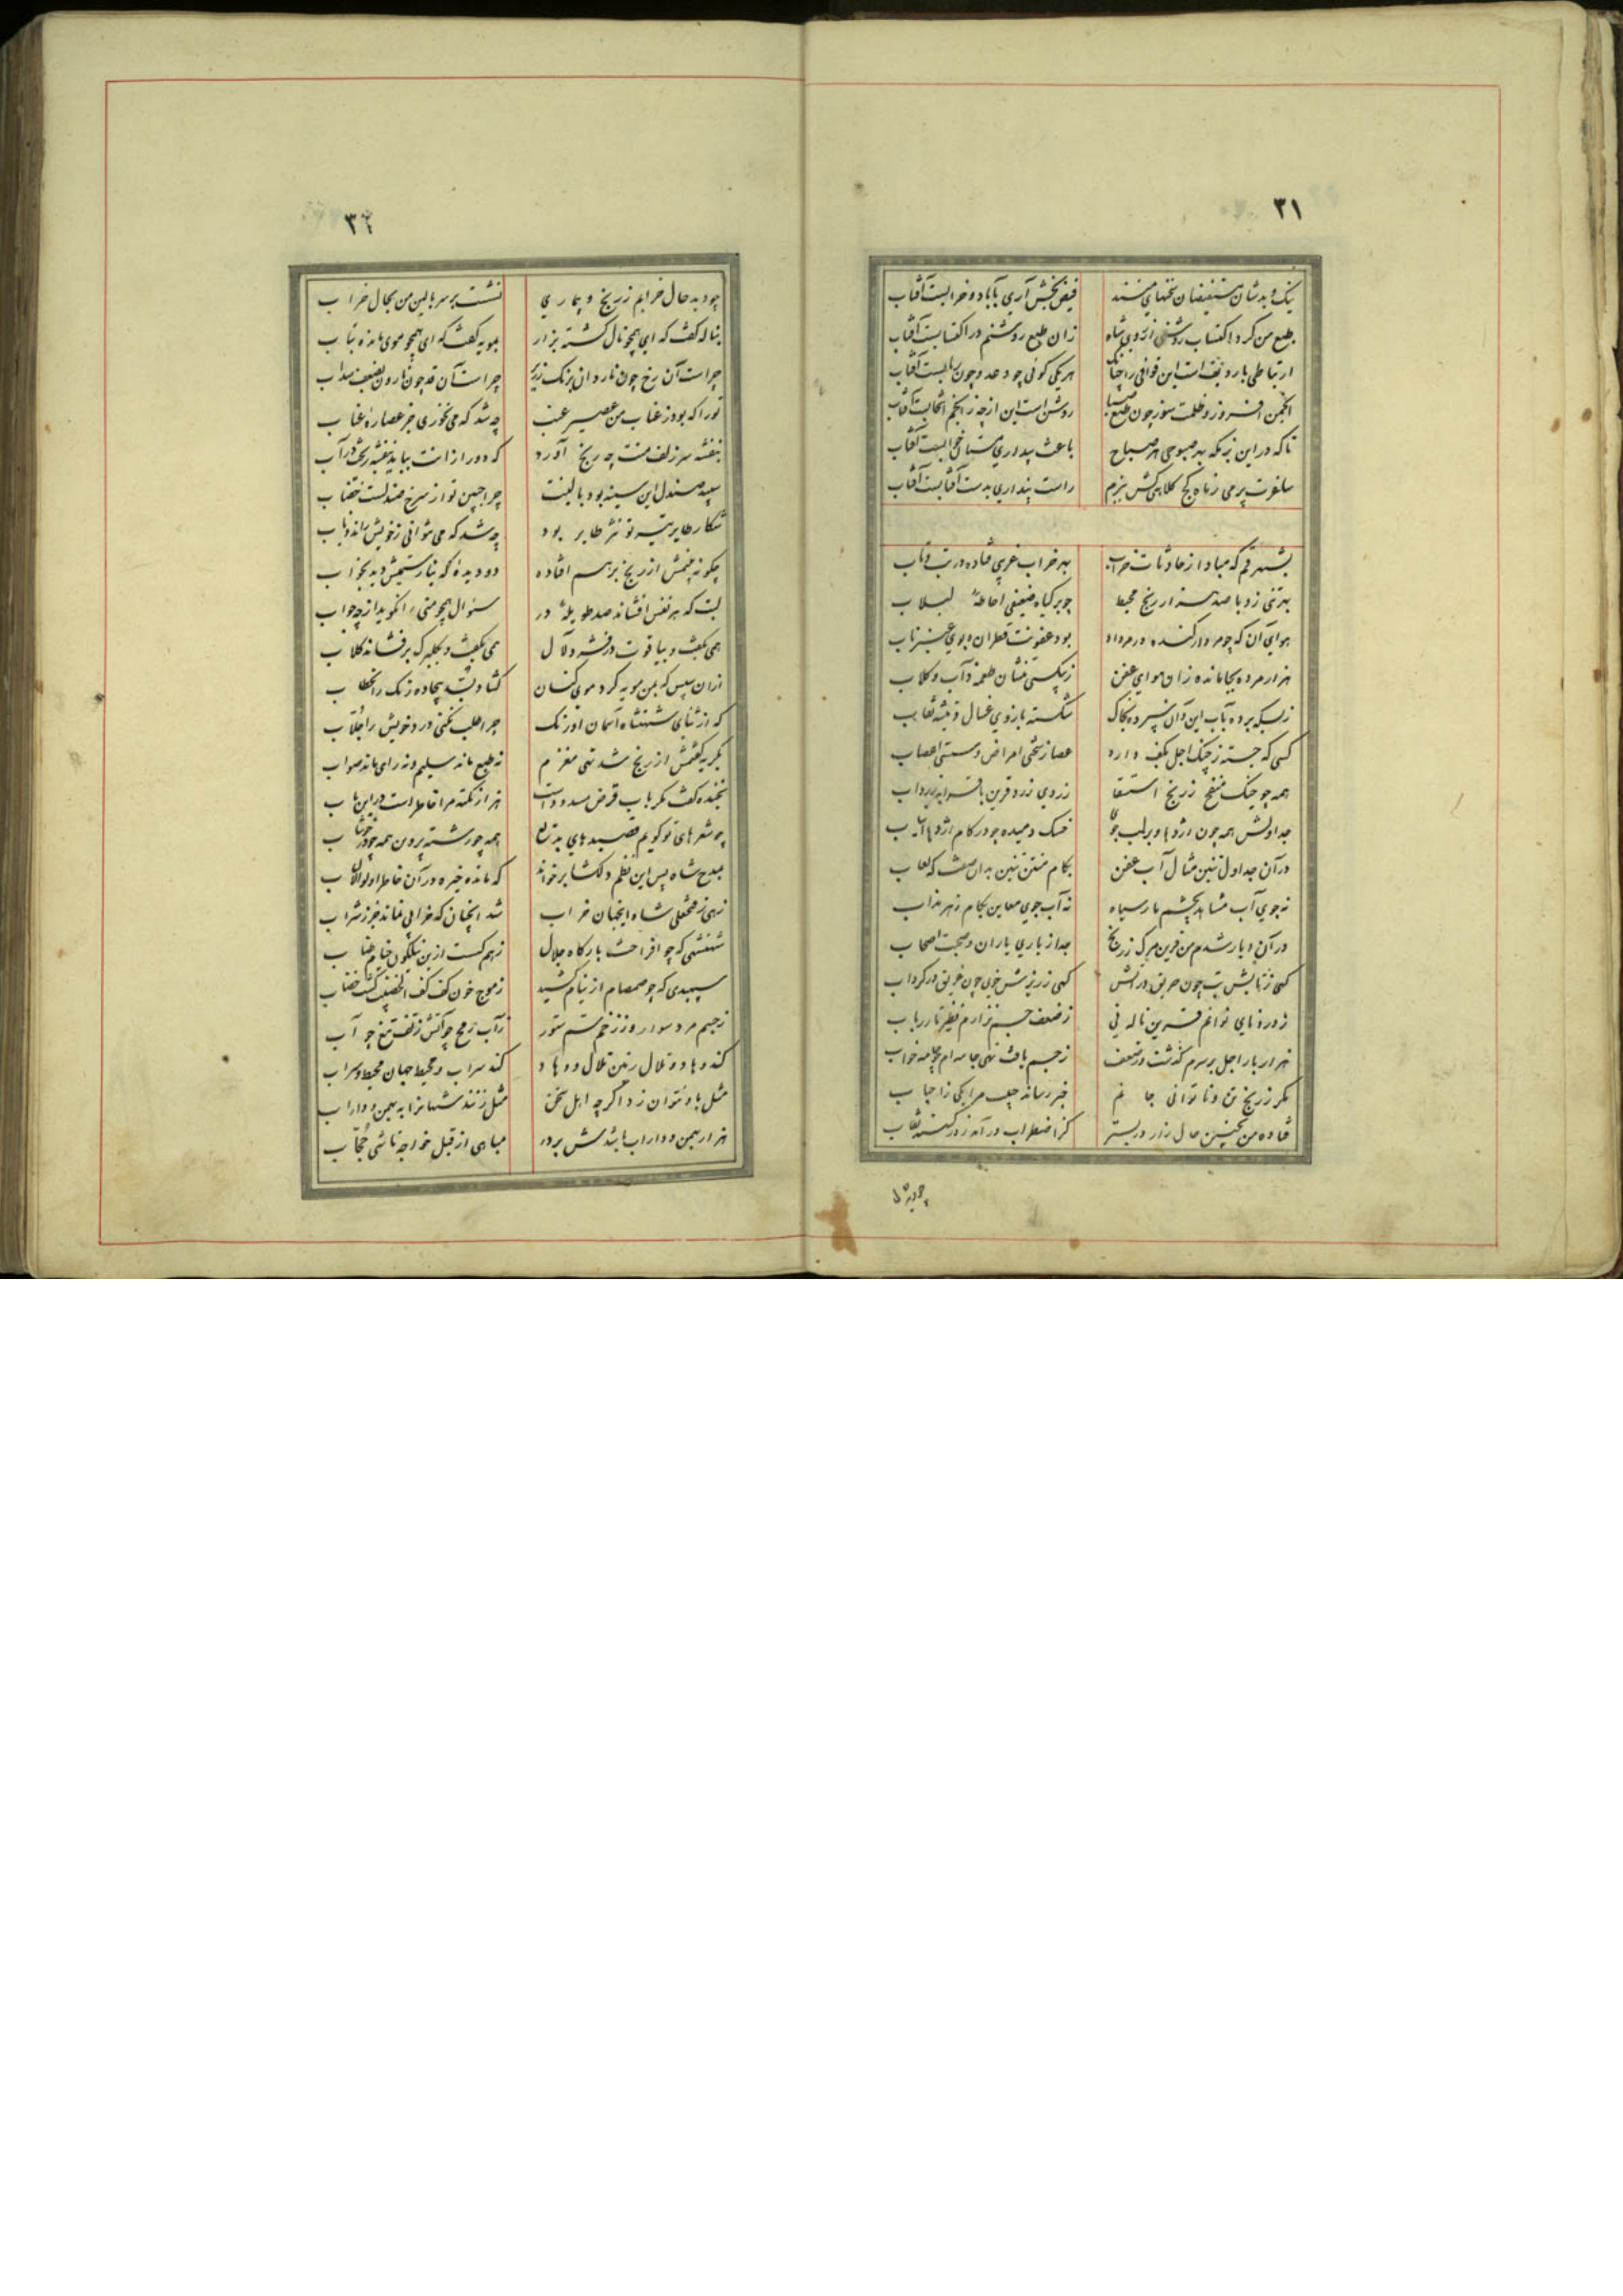 ۳۱
نیک و بدشان مستفیضان سخنهای منند فیض بخش آری بآباد و خرابست آفتاب
طبع من کرد اکتساب روشنی از روی شاه زان طبع روشنم در اکتسابست آفتاب
ارتباطی با ردیفات این قوافی را چنانک هر یکی گوئی چو دعد و چون ربابست آفتاب
انجمن افروز و ظلمت سوز چون طبع روشن است این از چه ز انجم انتخابست آفتاب
تا که در این بزمگه بهر صبوحی هر صباح باعث بیداری مستان خوابست آفتاب
ساغرت پر می ز ماه کج کلاهی کش ببزم راست پنداری بدست آفتابست آفتاب
بشهر قم که مبادا ز حادثات خراب بهر خراب غریبی فتاده در تب و تاب
بهر تنی ز وبا صد هزار رنج محیط چو بر گیاه ضعیفی احاطهٔ لبلاب
هوای آن که چو مردار گنده در مرداد بود عفونت قطران و بوی عنبر ناب
هزار مرده بیجا مانده زان هوای عفن ز بیکسی تنشان طعمهٔ ذآب و کلاب
ز بسکه برده بآب این و آن سپرده بخاک شکسته بازوی غسال و تیشهٔ نقاب
کسی که جسته ز چنگ اجل بکف دارد عصا ز سختی امراض و سستی اعصاب
همه چو خیک منفخ ز رنج استسقا ز روی زرد قرین با
جداولش همه چون اژدها و بر لب جو خسک دمیده چو در کام اژدها انیاب
در آن جداول تنین مثال آب عفن بکام منتن تنین بدان صفت که لعاب
نه جوی آب مشابه بچشم مار سیاه نه آب جوی معاین بکام زهر مذاب
در آن دیار شدم من قرین مرگ ز رنج جدا ز یاری یاران و صحبت اصحاب
گهی ز تابش تب چون حریق در آتش گهی ز ریزش خوی چون غریق در گرداب
ز درد نای نوانم قرین ناله نی ز ضعف جسم نزارم نظیر تار رباب
هزار بار اجل بر سرم گذشت و ز ضعف ز جسم یافت تهی جامه ام چو جامه خواب
مگر ز رنج تن و ناتوانی جانم خبر رساند بجیب مرا یکی ز احباب
فتاده من بچنین حال زار در بستر کز اضطراب در آمد ز در گسسته نقاب
چو دید حال
۳۲
چو دید حال خرابم ز رنج و بیماری نشست بر سر بالین من بحال خراب
بناله گفت که ای همچو نال گشته نزار بمویه گفت که ای همچو موی مانده بتاب
چراست آن رخ چون ناردان برنگ زریر چراست آن قد چون نارون بضعف سداب
تو را که بود ز عناب من عصیر عنب چه شد که می نخوری جز عصارهٔ عناب
بنفشه سر زلف منت چه رنج آورد که دور از آنت بباید بنفشه ریخت در آب
سپید صندل این سینه بود بالینت چرا جبین تو از سرخ صندلست خضاب
شکار طایر تیر تو نسر طایر بود چه شد که می نتوانی ز خویش راند ذباب
چگونه بینمش از رنج بر هم افتاده دو دیدهٔ که نیارستمیش دید بخواب
لبت که هر نفس افشاند صد طویلهٔ در سؤال همچو منی را نگوید از چه جواب
همی بگفت و بیاقوت در فشرد لآل همی بگفت و بگلبرگ بر فشاند گلاب
ازان سپس که بمن مویه کرد موی کنان گشاد بسد بیجاده رنگ را بخطاب
که از ثنای شهنشاه آسمان اورنگ چرا طلب نکنی درد خویش را جلاب
بگریه گفتمش از رنج شد تهی مغزم نه طبع ماند سلیم و نه رای ماند صواب
بخنده گفت مگر باب قرض مسدود است هزار نکته مرا خاطر است در این باب
چو شعرهای تو گویم قصیدهای بدیع همه چو رشته پروین همه چو در خوشاب
بمدح شاه پس این نظم دلکشا بر خواند که مانده خیره در آن خاطر اولوالالباب
زهی ز فتحعلی شاه اینجهان خراب شد آنچنان که خرابی نماند جز ز شراب
شهنشهی که چو افراخت بارگاه جلال ز هم گسست ازین نیلگون خیام طناب
سپهبدی که چو صمصام از نیام کشید ز موج خون کف کف الخضیب گشت خضاب
ز جیم مرد سوار و ز زخم سم ستور ز آب رمح چو آتش ز تف تیغ چو آب
کند وهاد و تلال زمین تلال و وهاد کند سراب و محیط جهان محیط و سراب
مثل باو نتوان زد اگر چه اهل سخن مثل زنند شهانرا به بهمن و داراب
هزار بهمن و داراب باشدش بر در مباهی از قبل خواجه تاشی حجاب